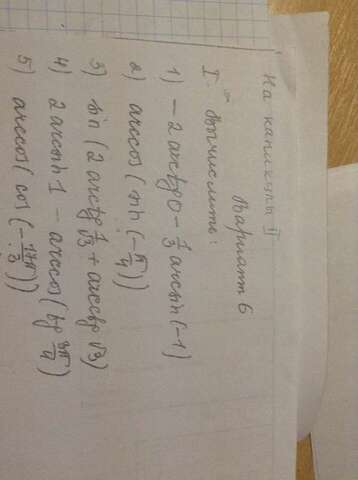 На каникулы II
Вариант 6
I. Вычислить:
1) - 2 arctg 0 - 1/3 arcsin (-1)
2) arccos (sin (-π/4))
3) sin (2 arctg 1/√3 + arcctg √3)
4) 2 arcsin 1 - arccos (tg 3π/4)
5) arccos (cos (-17π/3))